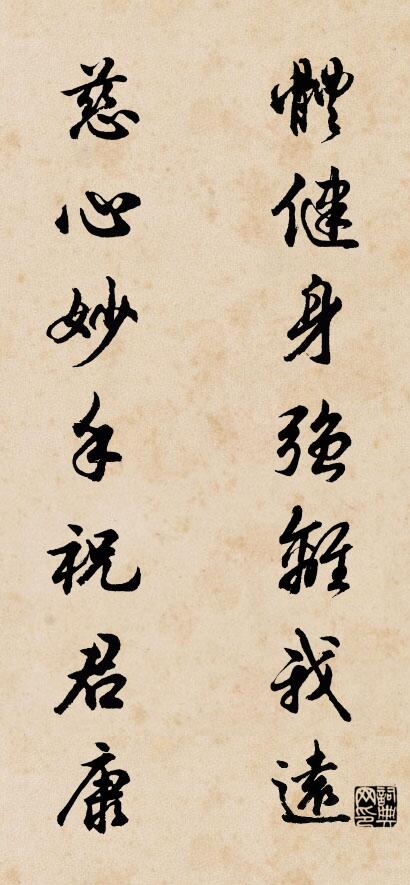 體健身強離我遠
慈心妙手祝君康
詞典網印